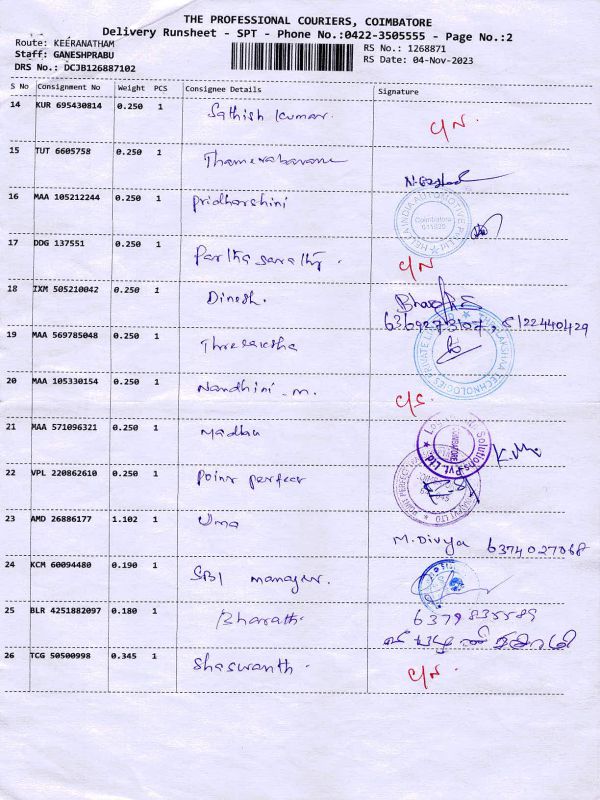 THE PROFESSIONAL COURIERS, COIMBATORE
Delivery Runsheet - SPT - Phone No.:0422-3505555 - Page No.:2
Route: KEERANATHAM
RS No.: 1268871
Staff: GANESHPRABU
RS Date: 04-Nov-2023
DRS No.: DCJB126887102
S No Consignment No Weight PCS Consignee Details Signature
14 KUR 695430814 0.250 1 Sathish Kumar. C/N.
15 TUT 6605758 0.250 1
16 MAA 105212244 0.250 1 pridharshini
17 DDG 137551 0.250 1 Partha sarathy. C/N
18 IXM 505210042 0.250 1 Dinesh.
6369273107, 8122440429
19 MAA 569785048 0.250 1
20 MAA 105330154 0.250 1 Nandhini - m. C/S.
21 MAA 571096321 0.250 1 Madhu
22 VPL 220862610 0.250 1 Point perfect
23 AMD 26886177 1.102 1 Uma M. Divya 6374027068
24 KCM 60094480 0.190 1 SBI manager.
25 BLR 4251882097 0.180 1 Bharath 6379835589
26 TCG 50500998 0.345 1 Shaswanth. C/N.